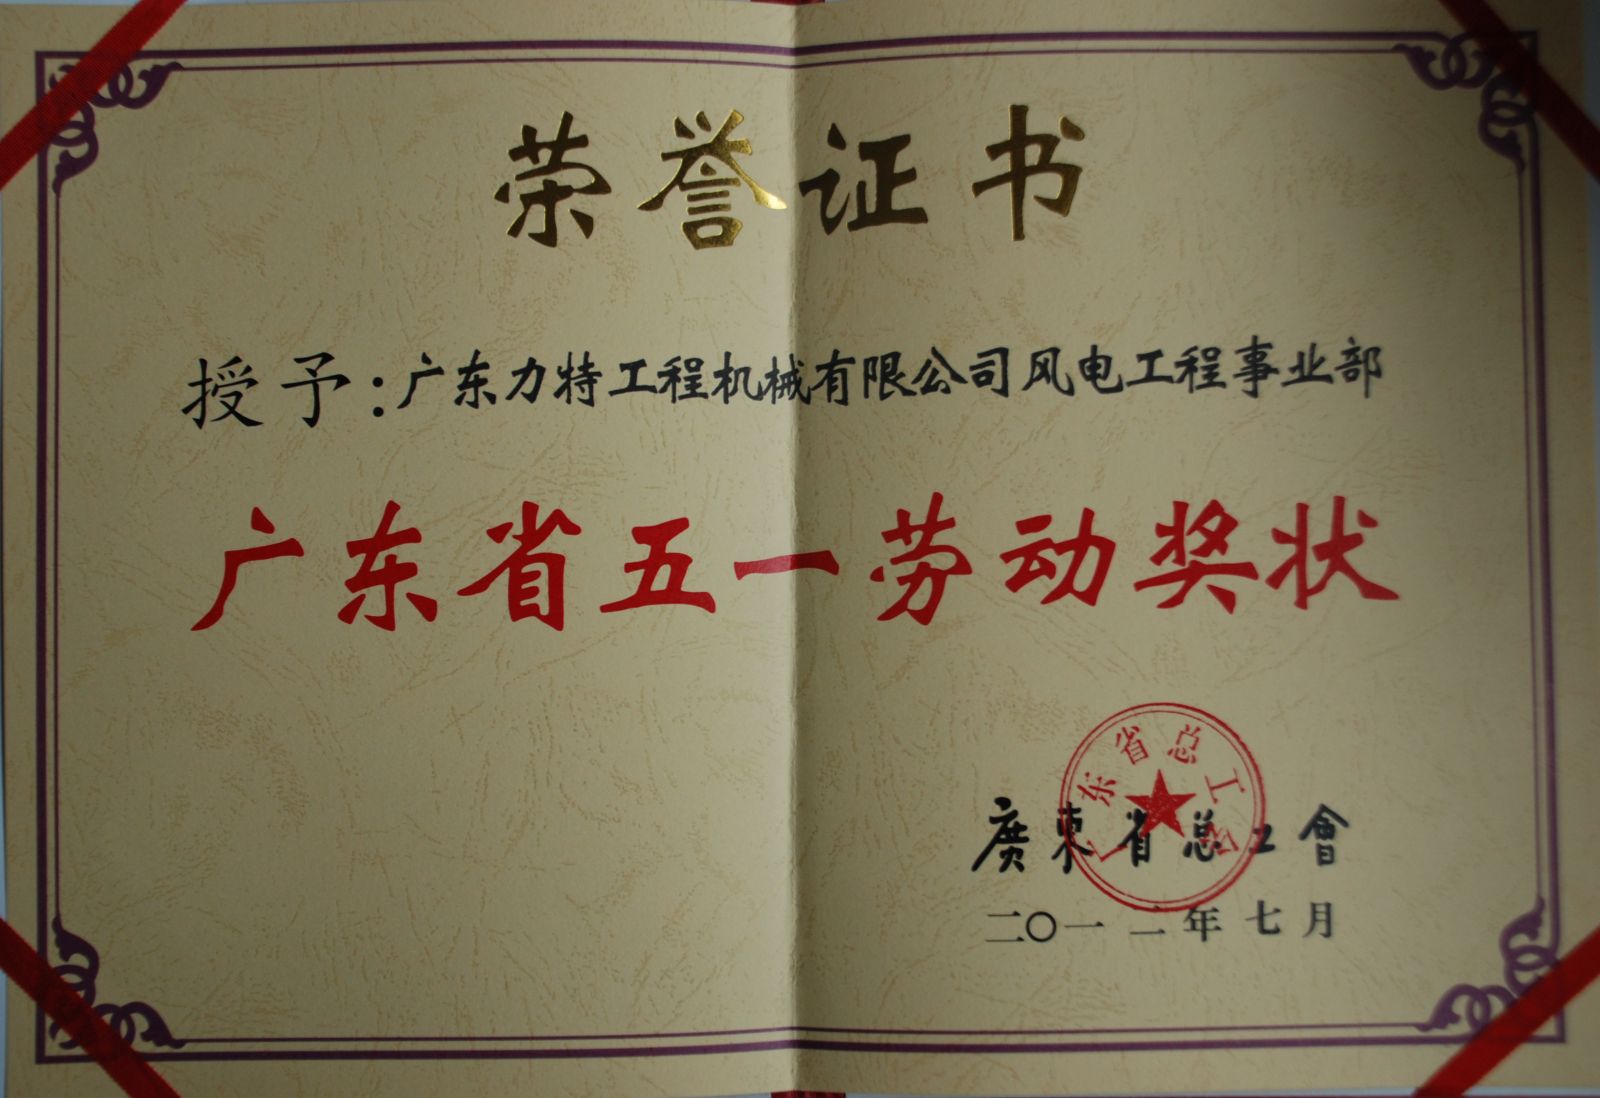 荣誉证书
授予：广东力特工程机械有限公司风电工程事业部
广东省五一劳动奖状
广东省总工会
廣東省总工會
二〇一二年七月